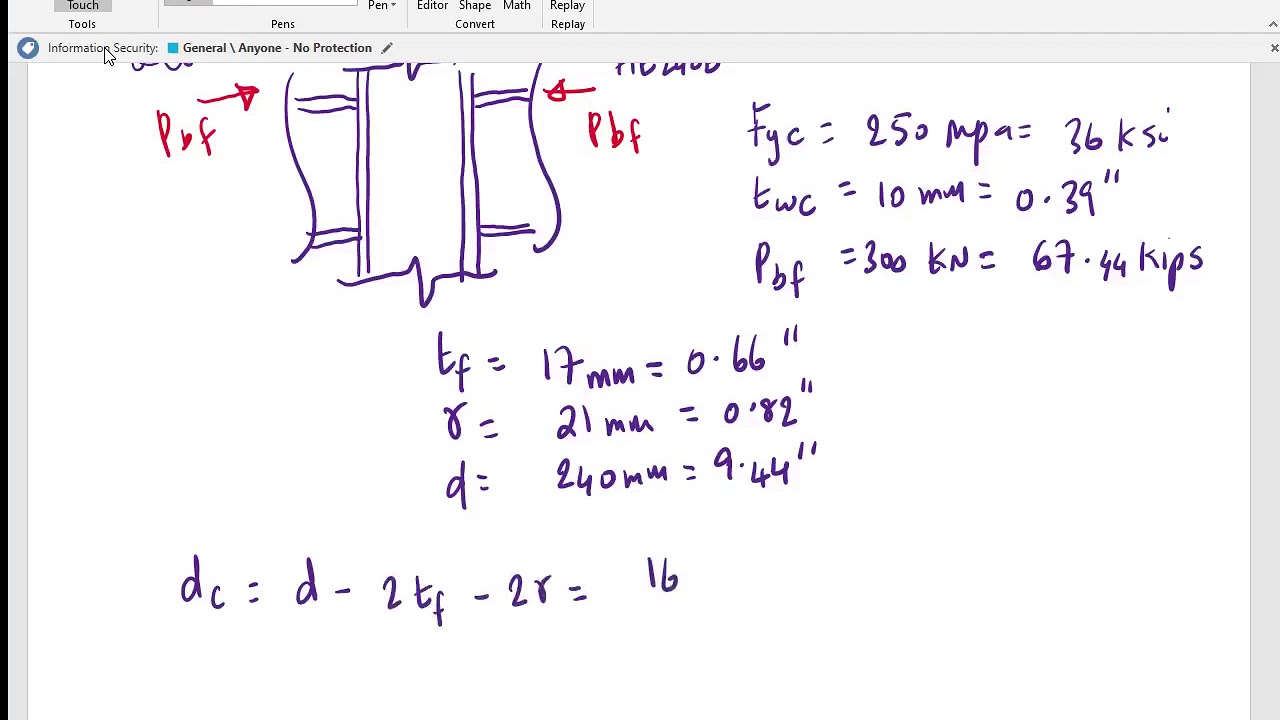 Touch
Pen
Editor Shape Math Replay
Tools Pens Convert Replay
Information Security: General \ Anyone - No Protection
Pbf
Pbf
Fyc = 250 mpa = 36 ksi
twc = 10 mm = 0.39"
Pbf = 300 KN = 67.44 kips
tf = 17mm = 0.66"
r = 21 mm = 0.82"
d = 240mm = 9.44"
dc = d - 2tf - 2r = 16